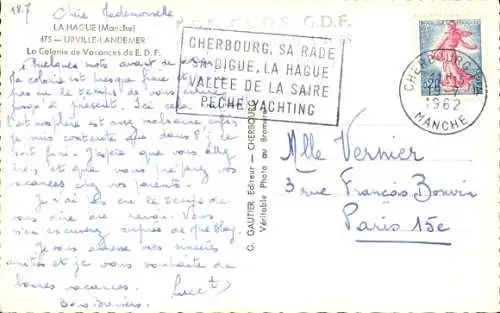 18.7 Chère Mademoiselle
LA HAGUE (Manche)
475 - URVILLE-LANDEMER
La Colonie de Vacances de E. D. F.
Quelques mots avant de
la colonie est presque finie et
pas eu le temps de vous écrire
jusqu'à présent. Ici
je me contente que
font faire. J'espère que vous allez
bien, et que vous préparez vos
vacances chez vos parents.
Je n'ai pas eu le temps de
vous dire au revoir. Vous
m'en excuserez auprès de
Je vous adresse mes sincères
amitiés et je vous souhaite de
bonnes vacances. Luce
Bons Baisers.
G. D. F.
CHERBOURG, SA RADE
SA DIGUE, LA HAGUE
VALLÉE DE LA SAIRE
PECHE YACHTING
CHERBOURG
1962
MANCHE
G. GAUTIER Editeur - CHERBOURG
Véritable Photo au Bromure
Mlle Vernier
3 rue François Bonvin
Paris 15e